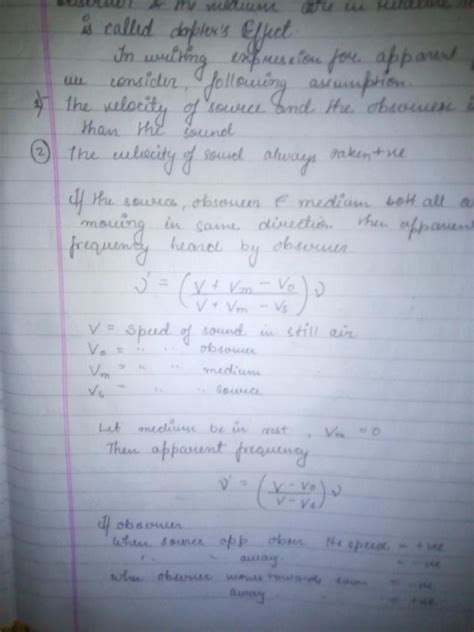 is called dopler's Effect.
In writing expression for apparent
we consider, following assumption.
1) the velocity of source and the observer i
than the sound
(2) The velocity of sound always taken +ve
If the source, observer & medium all a
moving in same direction then apparent
frequency heard by observer
ν' = (V + Vm - Vo / V + Vm - Vs) ν
V = speed of sound in still air
Vo = " " observer
Vm = " " medium
Vs = " " source
Let medium be in rest, Vm = 0
Then apparent frequency
ν' = (V - Vo / V - Vs) ν
If observer
When source opp obser its speed = +ve
" " away = -ve
When observer moves towards = -ve
away = +ve